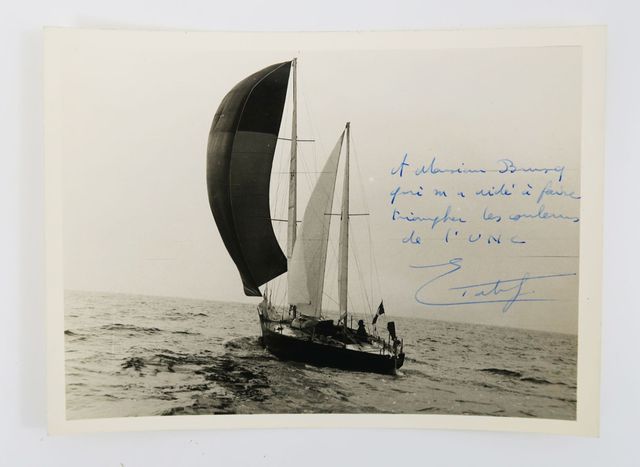 A Monsieur Bruscq
qui m a aidé à faire
triompher les couleurs
de l'UNC
E Tabarly